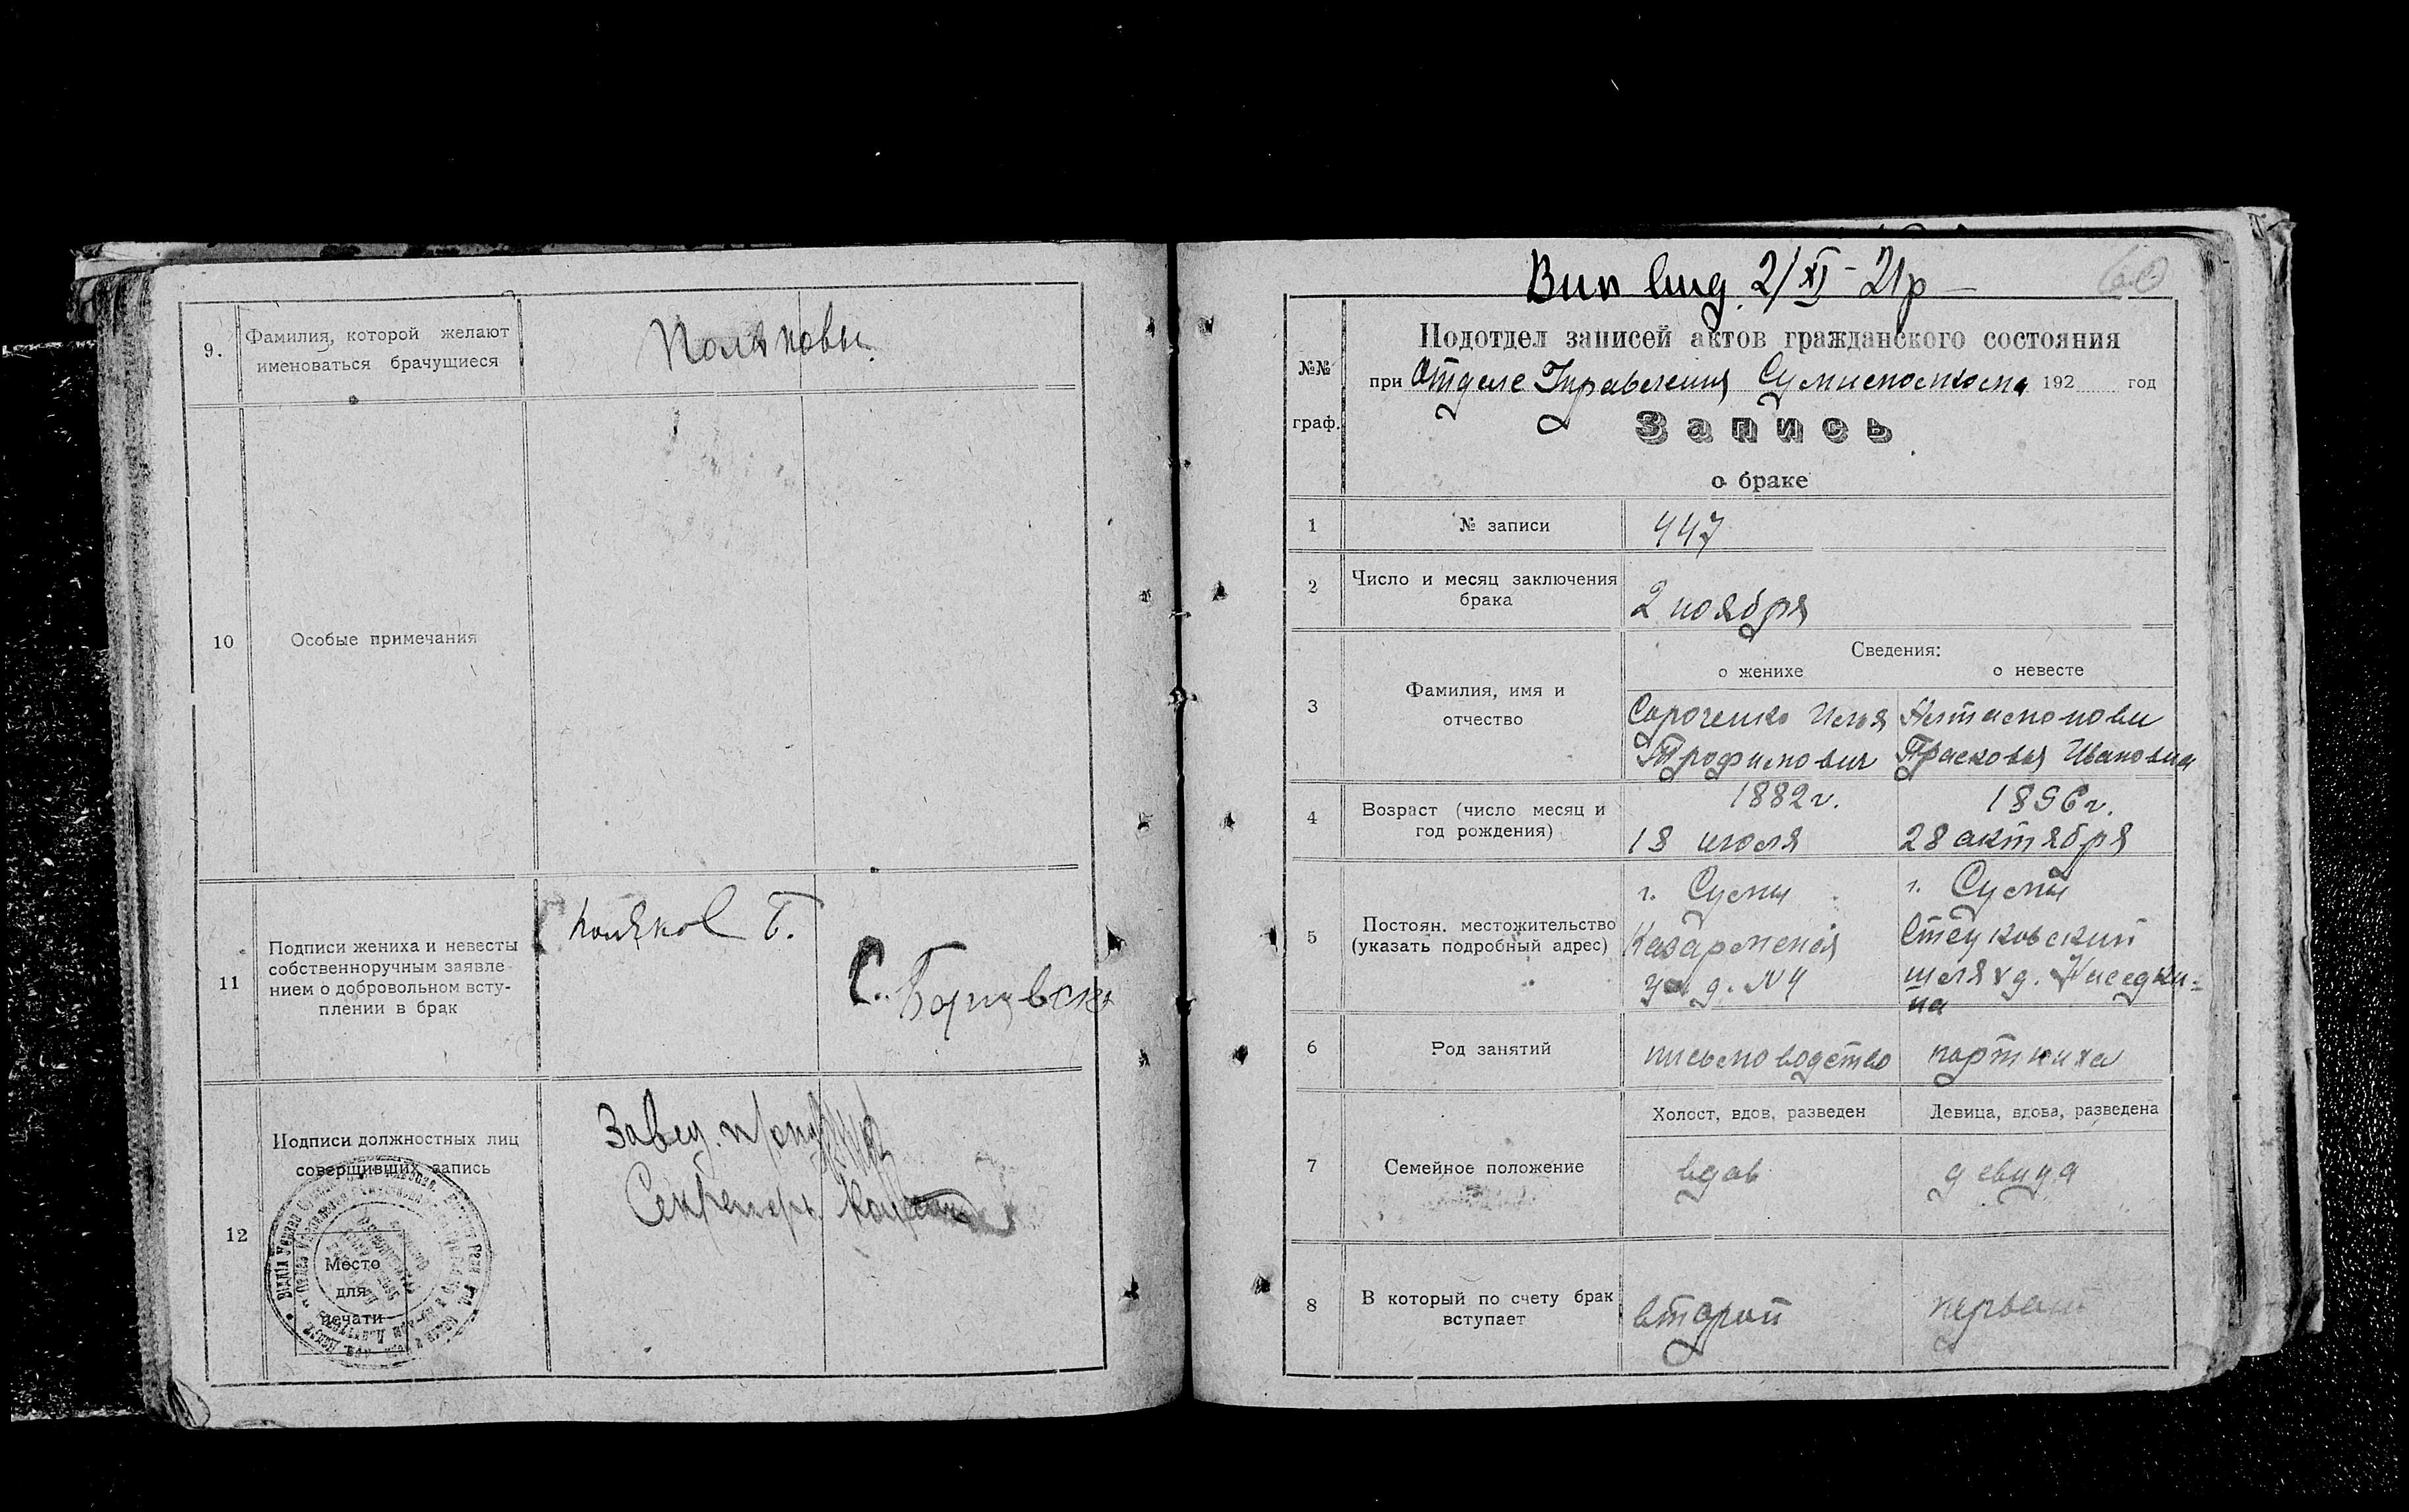 9.
Фамилия, которой желают
именоваться брачущиеся
Поляковы.
10
Особые примечания
11
Подписи жениха и невесты
собственноручным заявле-
нием о добровольном всту-
плении в брак
Поляков Б.
С.
12
Подписи должностных лиц
совершивших запись
Завед.
Секретарь
Место
для
печати
60
2/XI-21р
№№
граф.
Подотдел записей актов гражданского состояния
при Отделе Управления 192 год
Запись
о браке
1
№ записи
447
2
Число и месяц заключения
брака
2 ноября
3
Фамилия, имя и
отчество
Сведения:
о женихе
о невесте
Сороченко Илья
Трофимович
Прасковья Ивановна
4
Возраст (число месяц и
год рождения)
1882 г.
18 июля
1896 г.
28 актября
5
Постоян. местожительство
(указать подробный адрес)
г. Сумы
д. №4
г. Сумы
6
Род занятий
письмоводство
портниха
7
Семейное положение
Холост, вдов, разведен
Девица, вдова, разведена
вдов
девица
8
В который по счету брак
вступает
второй
первый